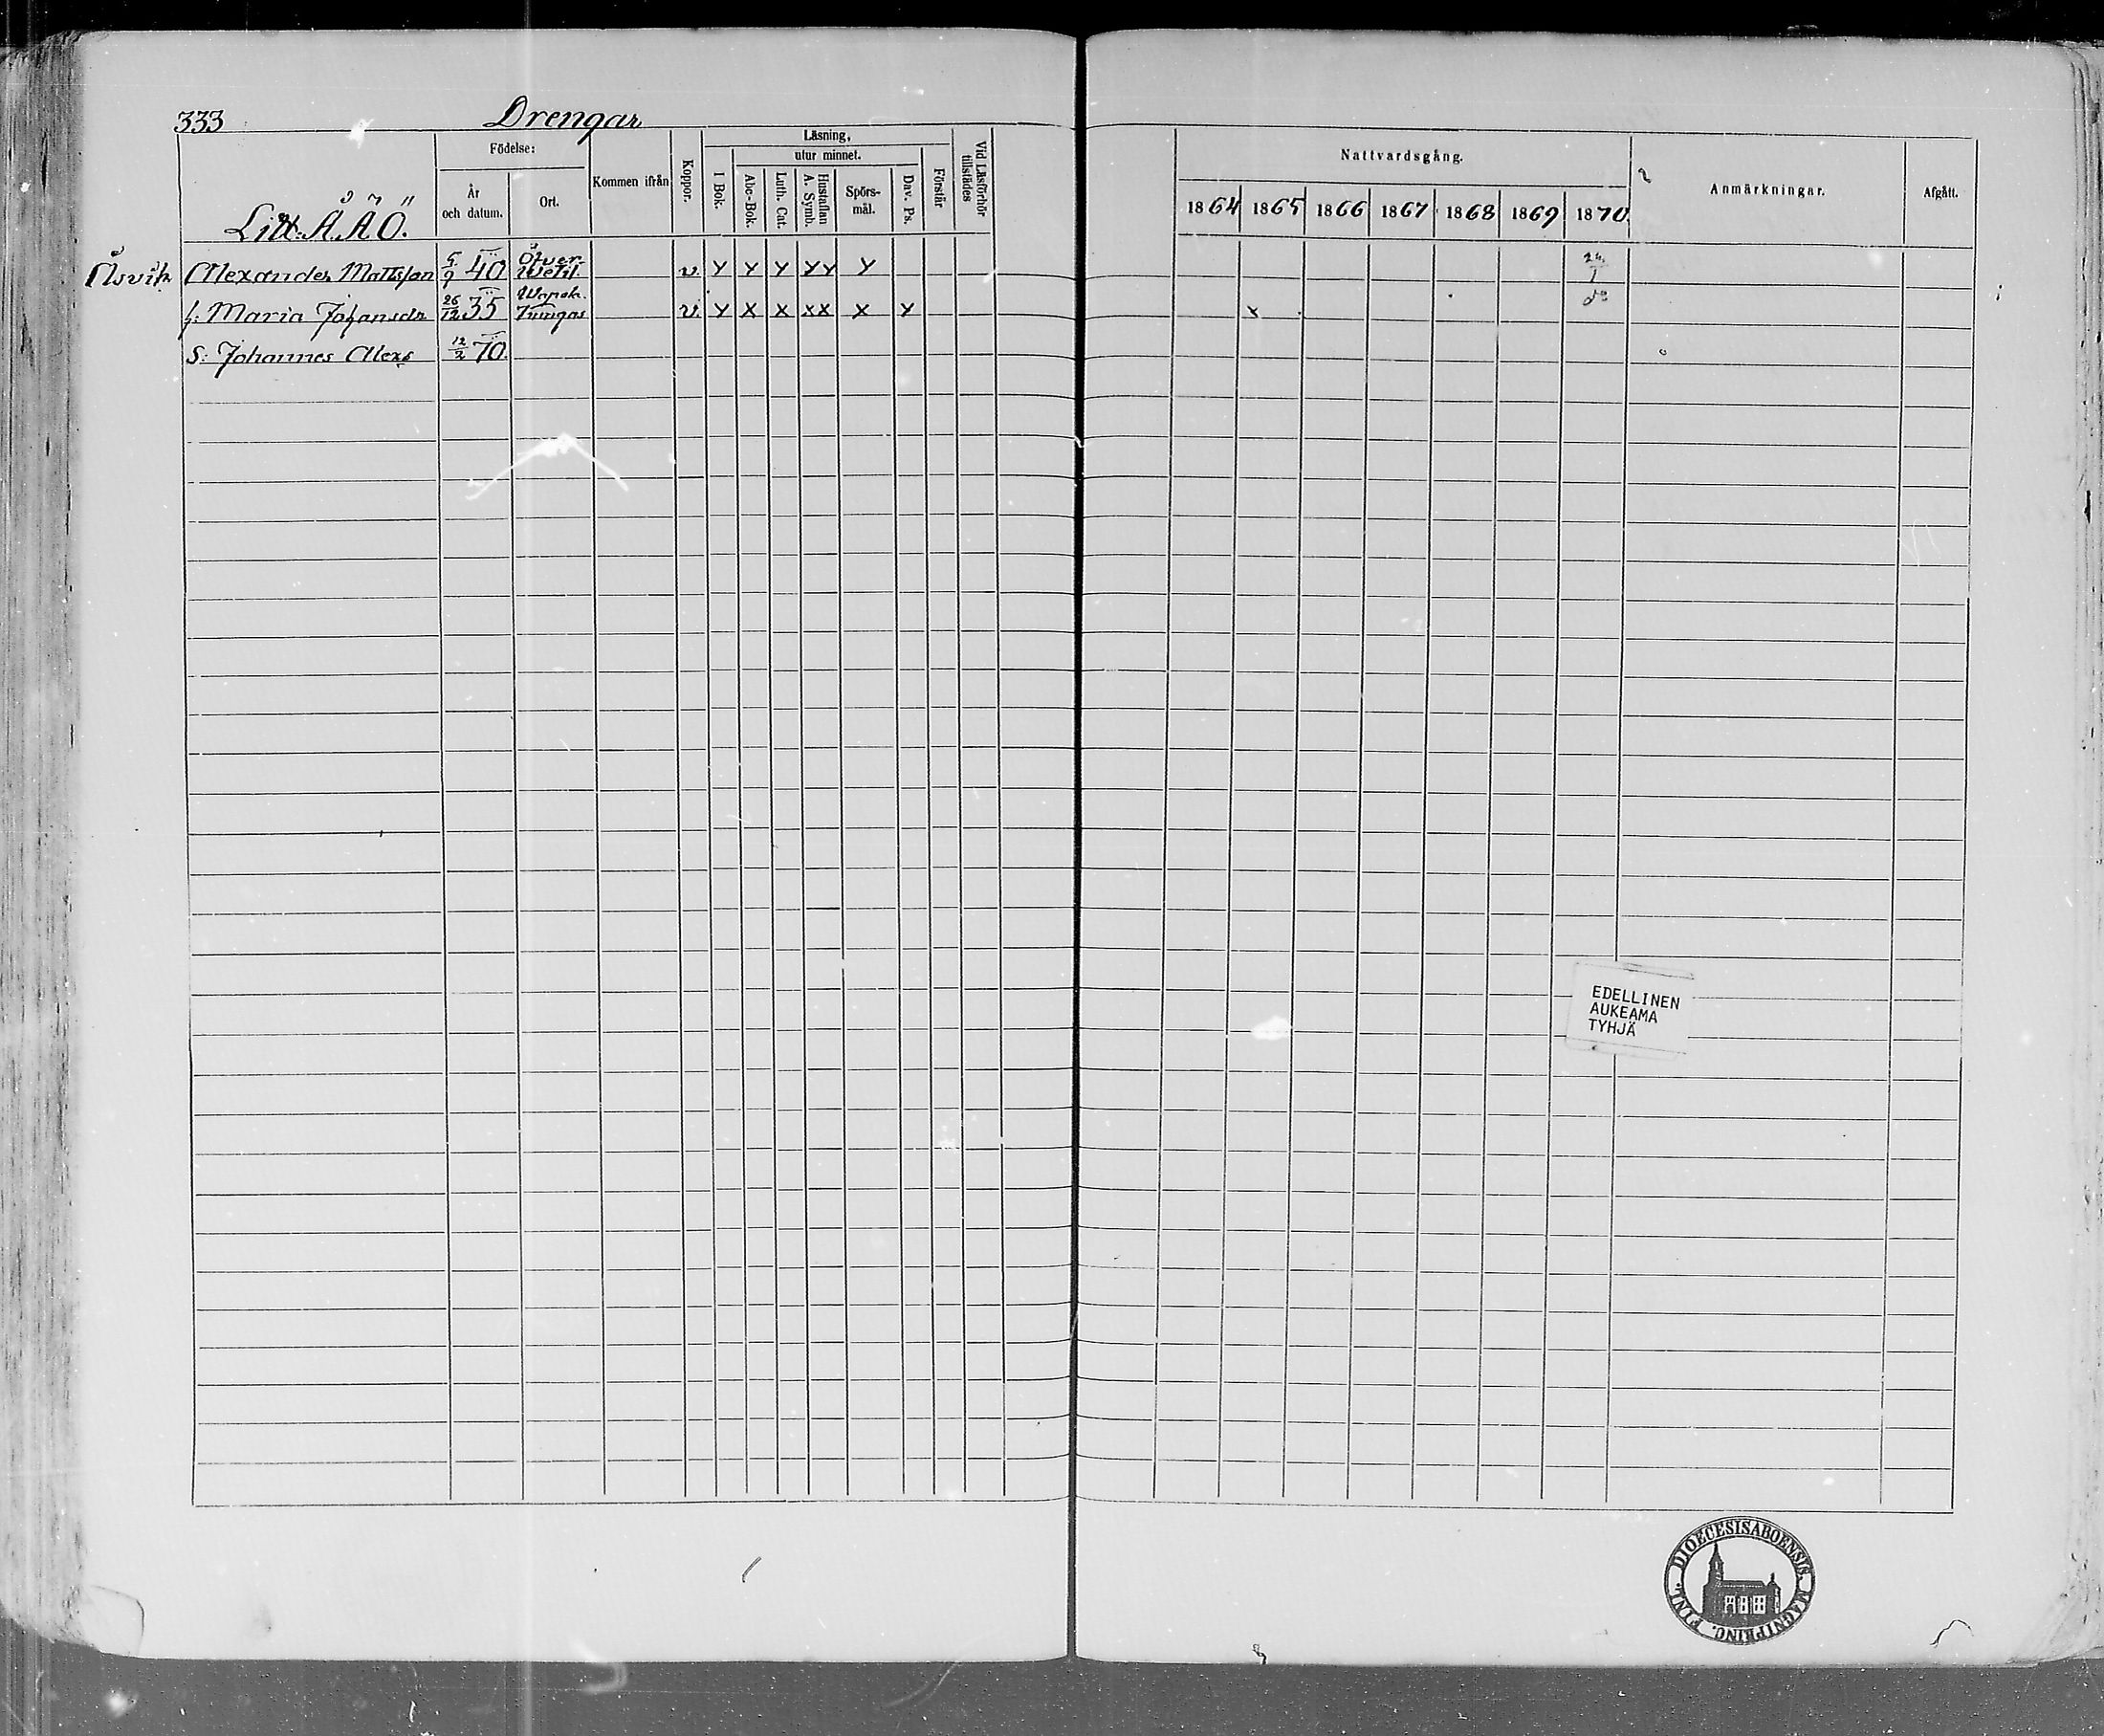 333 Drengar
Litt. Å Ä Ö.
Födelse:
År och datum.
Ort.
Kommen ifrån
Koppor.
Läsning,
I Bok.
utur minnet.
Abc-Bok.
Luth. Cat.
Hustaflan A. Symb.
Spörs-mål.
Dav. Ps.
Förstår
Vid Läsförhör tillstädes
Nattvardsgång.
1864 1865 1866 1867 1868 1869 1870
Anmärkningar.
Afgått.
Åsvik Alexander Mattsson 5/9 40 Öfver- Wetil v. Y Y Y YY Y 24/1
h: Maria Johansdr 26/12 35 v. Y X X XX X Y x do
S: Johannes Alexs 12/2 70.
EDELLINEN
AUKEAMA
TYHJÄ
DIOECESIS ABOENSIS. MAGNI PRINC. FINL.